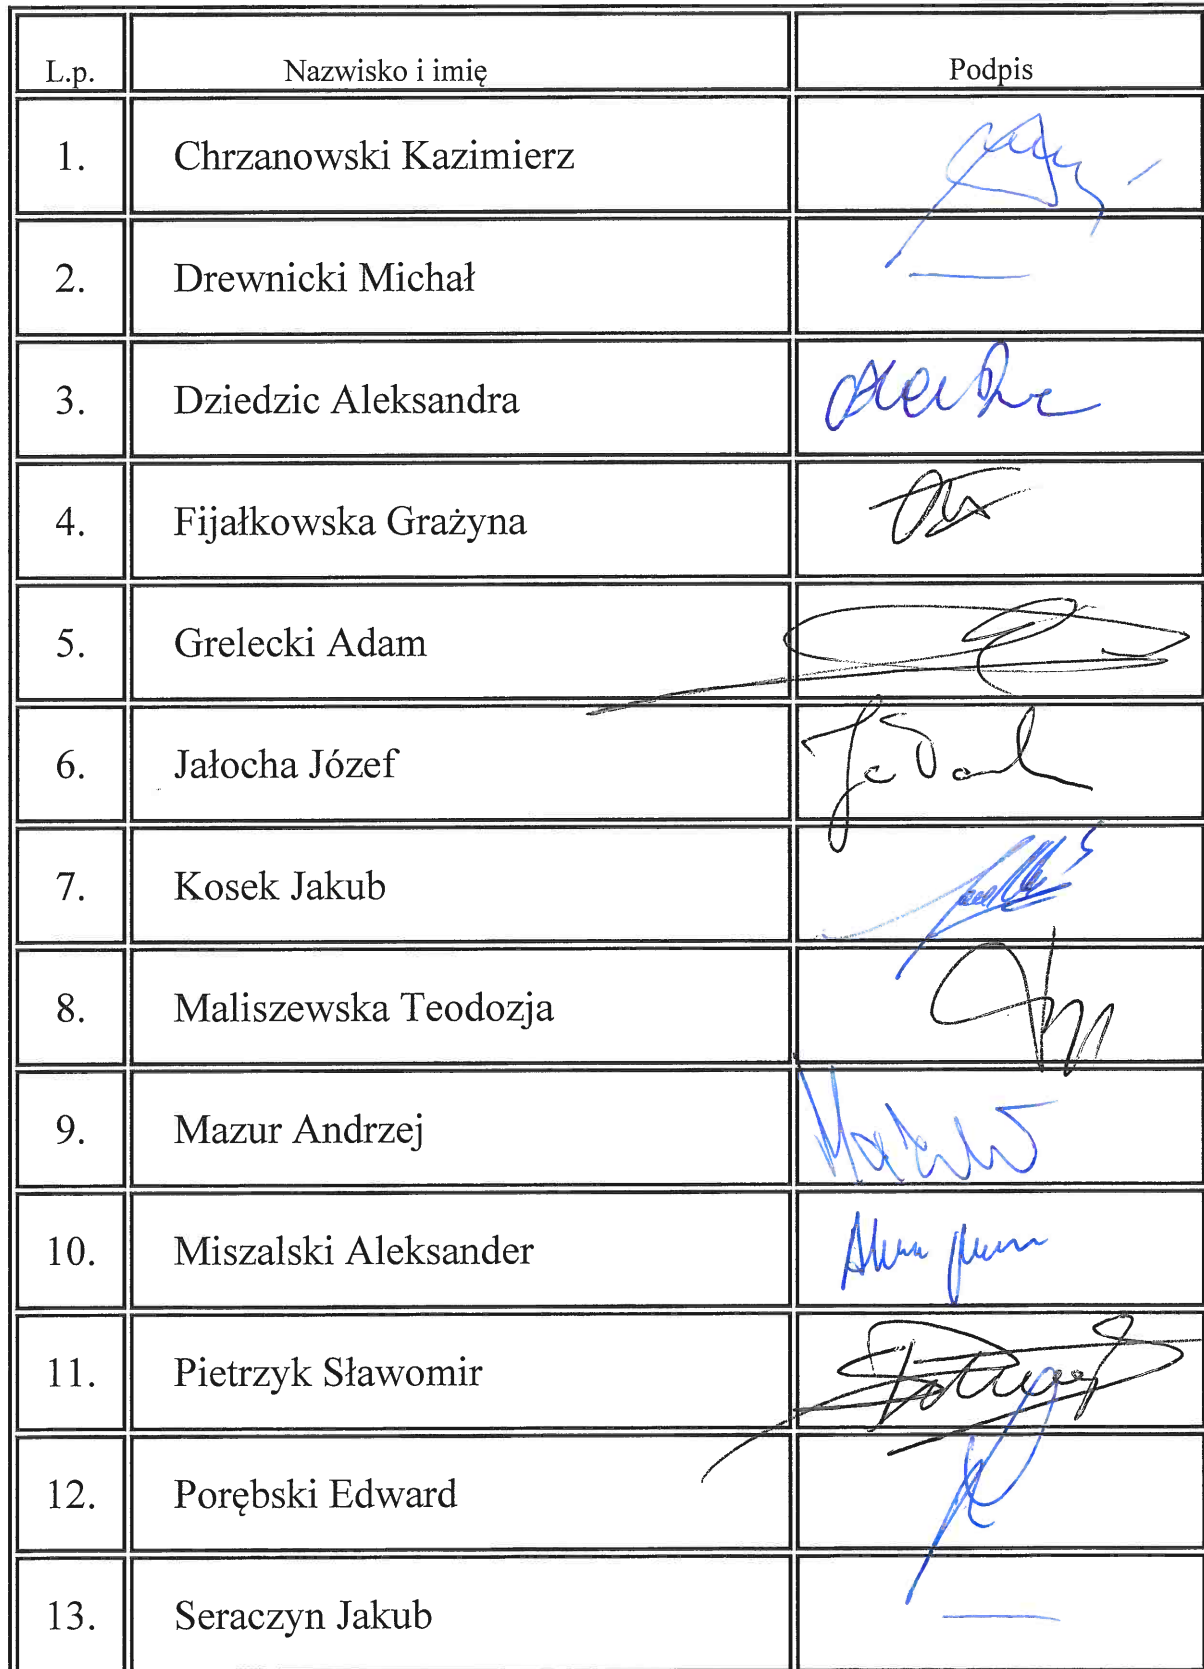 L.p. Nazwisko i imię Podpis
1. Chrzanowski Kazimierz
2. Drewnicki Michał —
3. Dziedzic Aleksandra
4. Fijałkowska Grażyna
5. Grelecki Adam
6. Jałocha Józef
7. Kosek Jakub
8. Maliszewska Teodozja
9. Mazur Andrzej
10. Miszalski Aleksander
11. Pietrzyk Sławomir
12. Porębski Edward
13. Seraczyn Jakub —